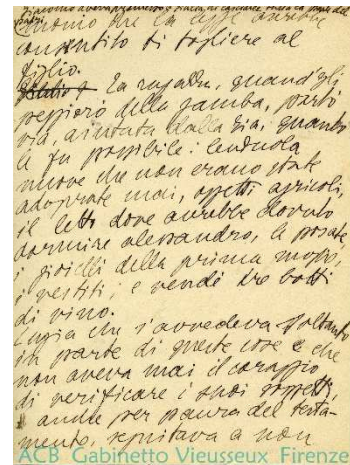 che la legge avrebbe
consentito di togliere al
figlio.
La ragazza, quand'egli
peggiorò della gamba, portò
via, aiutata dalla zia, quanto
le fu possibile: lenzuola
nuove che non erano state
adoprate mai, oggetti agricoli,
il letto dove avrebbe dovuto
dormire Alessandro, le posate,
i gioielli della prima moglie,
i vestiti; e vendé tre botti
di vino.
che s'avvedeva soltanto
in parte di queste cose e che
non aveva mai il coraggio
di verificare i suoi sospetti,
anche per paura del testa-
mento, seguitava a non
ACB Gabinetto Vieusseux Firenze